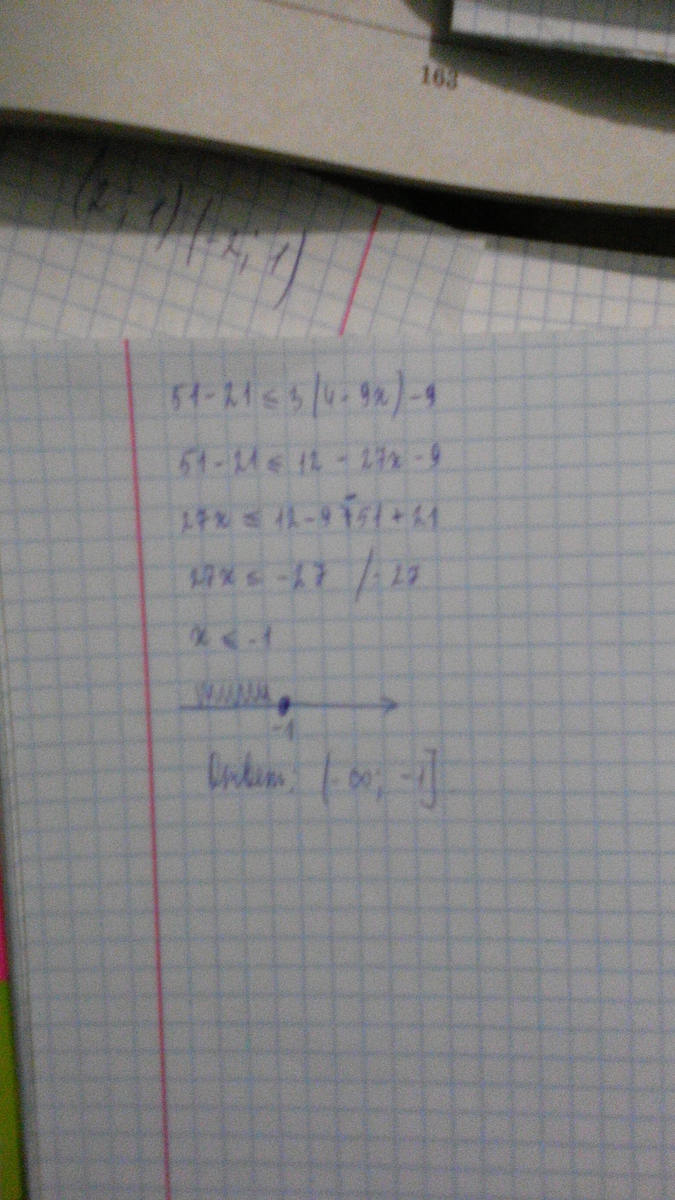 163
(2; 1) (-2; 1)
51-21 ≤ 3(4-9x)-9
51-21 ≤ 12 - 27x -9
27x ≤ 12-9-51+21
27x ≤ -27 /:27
x ≤ -1
-1
Ответ: (-∞; -1]